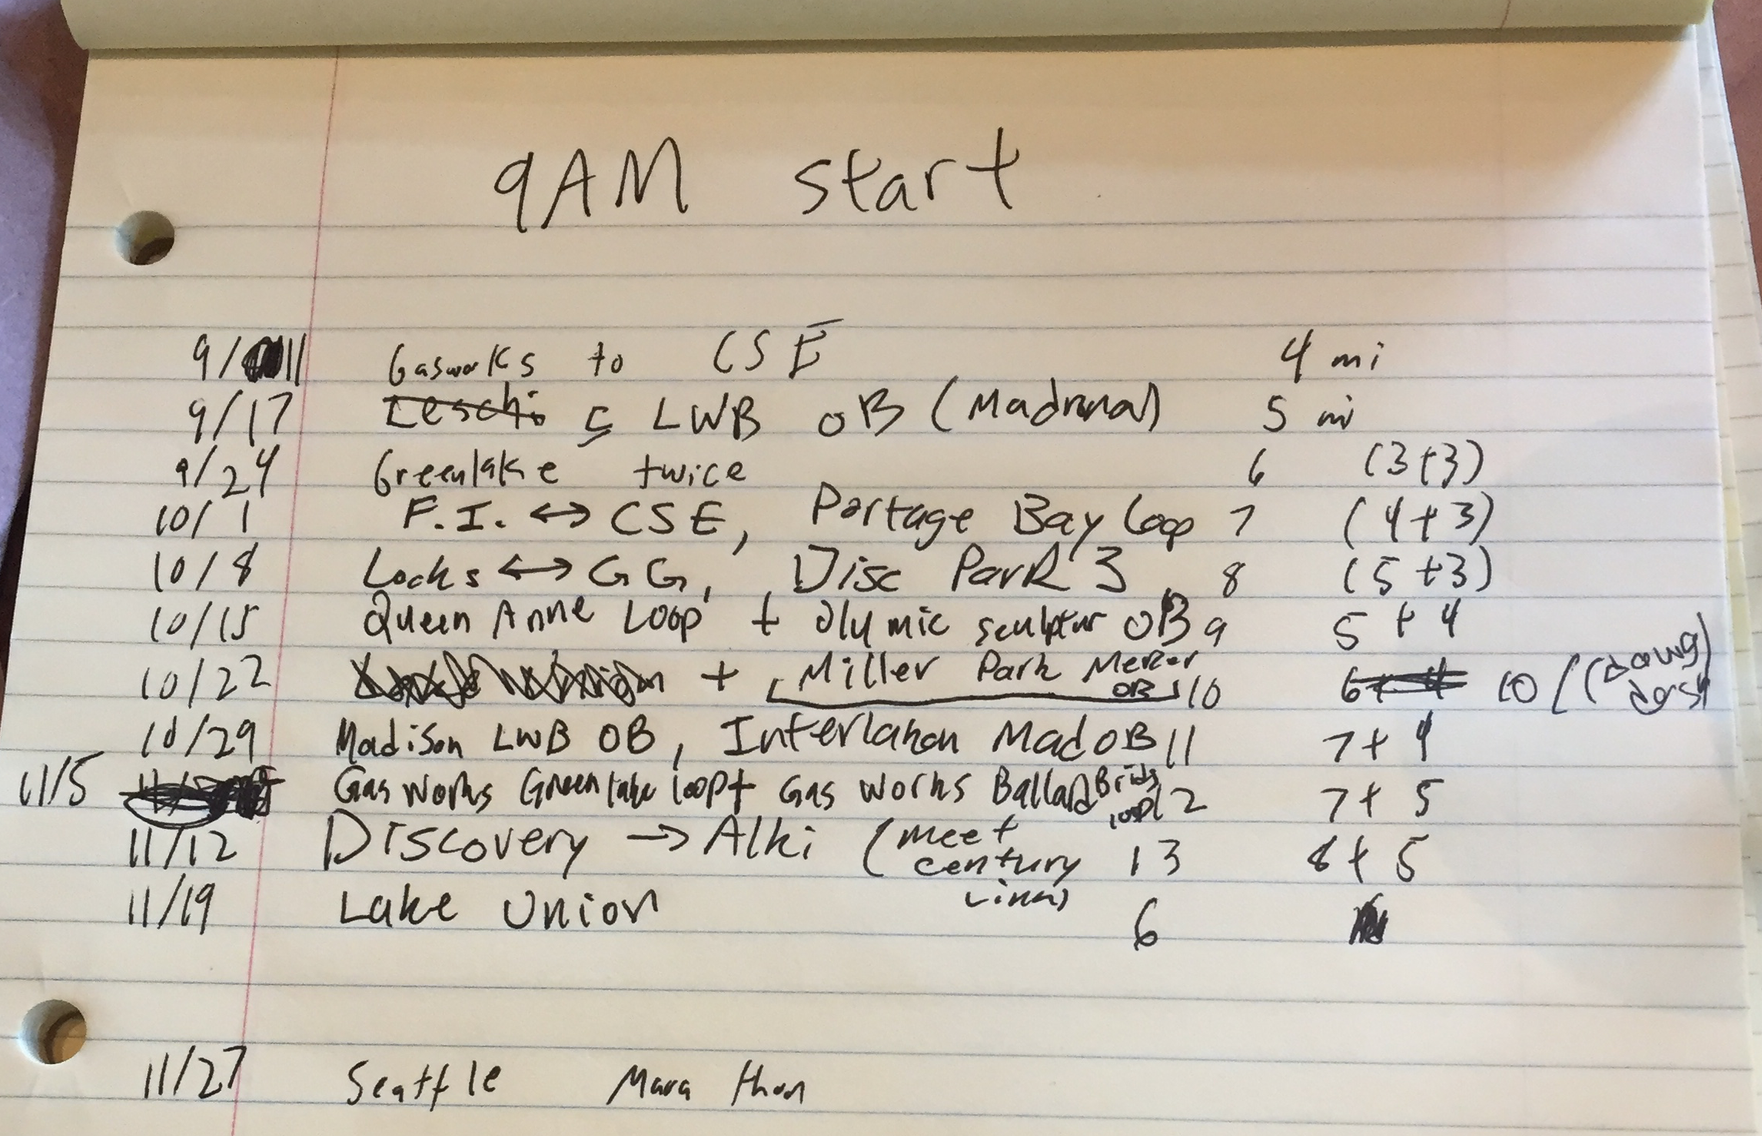 9AM start
9/11 Gasworks to CSE 4 mi
9/17 Leschi 5 LWB OB (Madrona) 5 mi
9/24 Greenlake twice 6 (3+3)
10/1 F.I. ↔ CSE, Portage Bay Loop 7 (4+3)
10/8 Locks ↔ GG, Disc Park 3 8 (5+3)
10/15 Queen Anne Loop + Olymic sculptur OB 9 5+4
10/22 + Miller Park Mercer OB 10 6+4 10 (dawg dash)
10/29 Madison LWB OB, Interlaken Mad OB 11 7+4
11/5 Gas Works Greenlake loop + Gas Works Ballard Bridg loop 12 7+5
11/12 Discovery → Alki (meet century Link) 13 8+5
11/19 Lake Union 6
11/27 Seattle Marathon